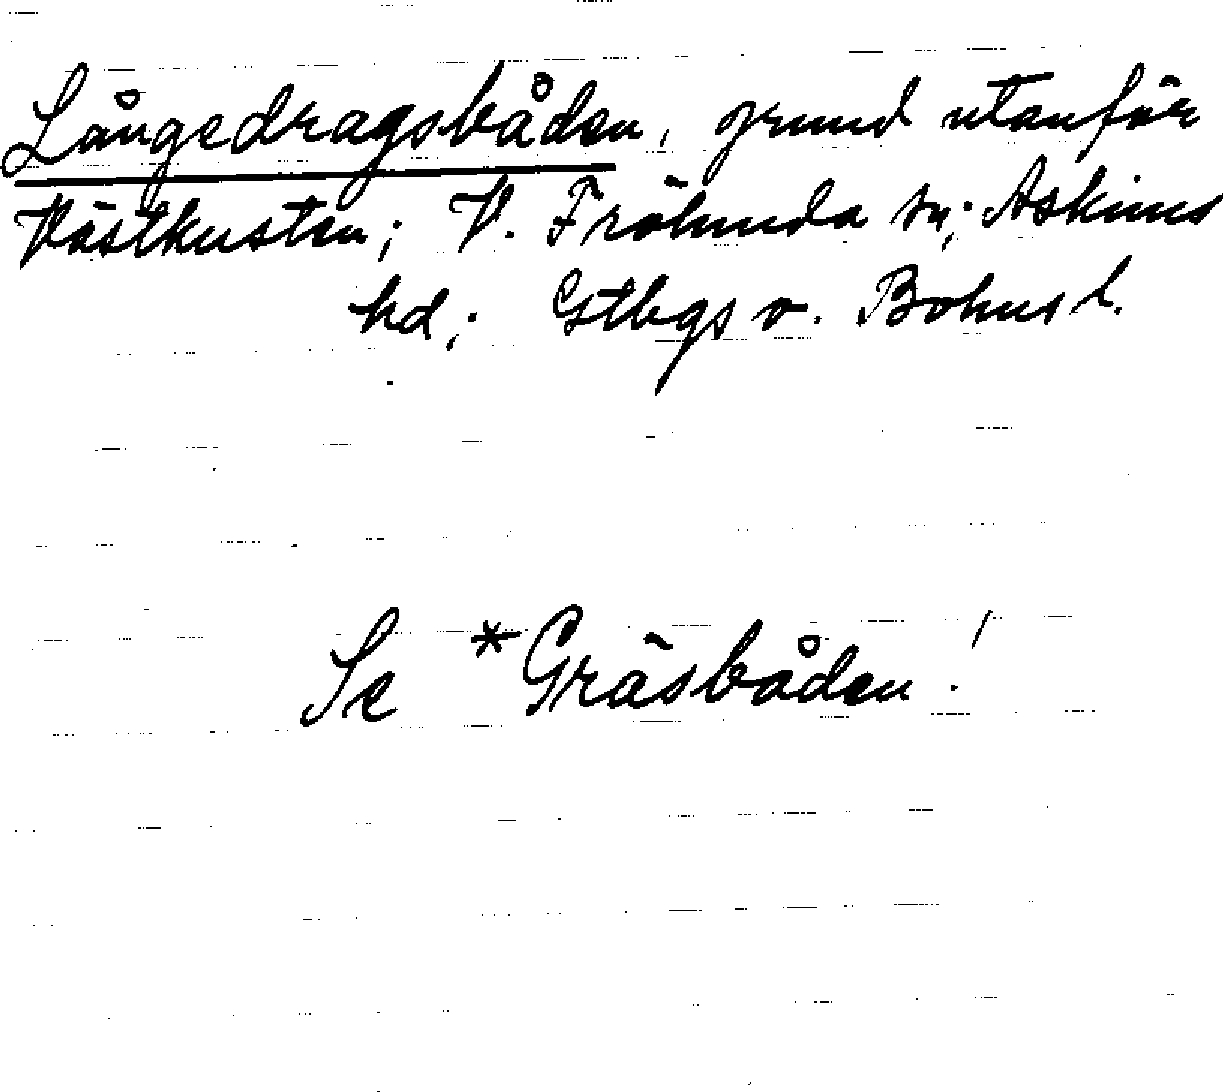 Långedragsbåden, grund utanför
Västkusten; V. Frölunda sn; Askims
hd; Gtbgs o. Bohus l.
Se *Gräsbåden!